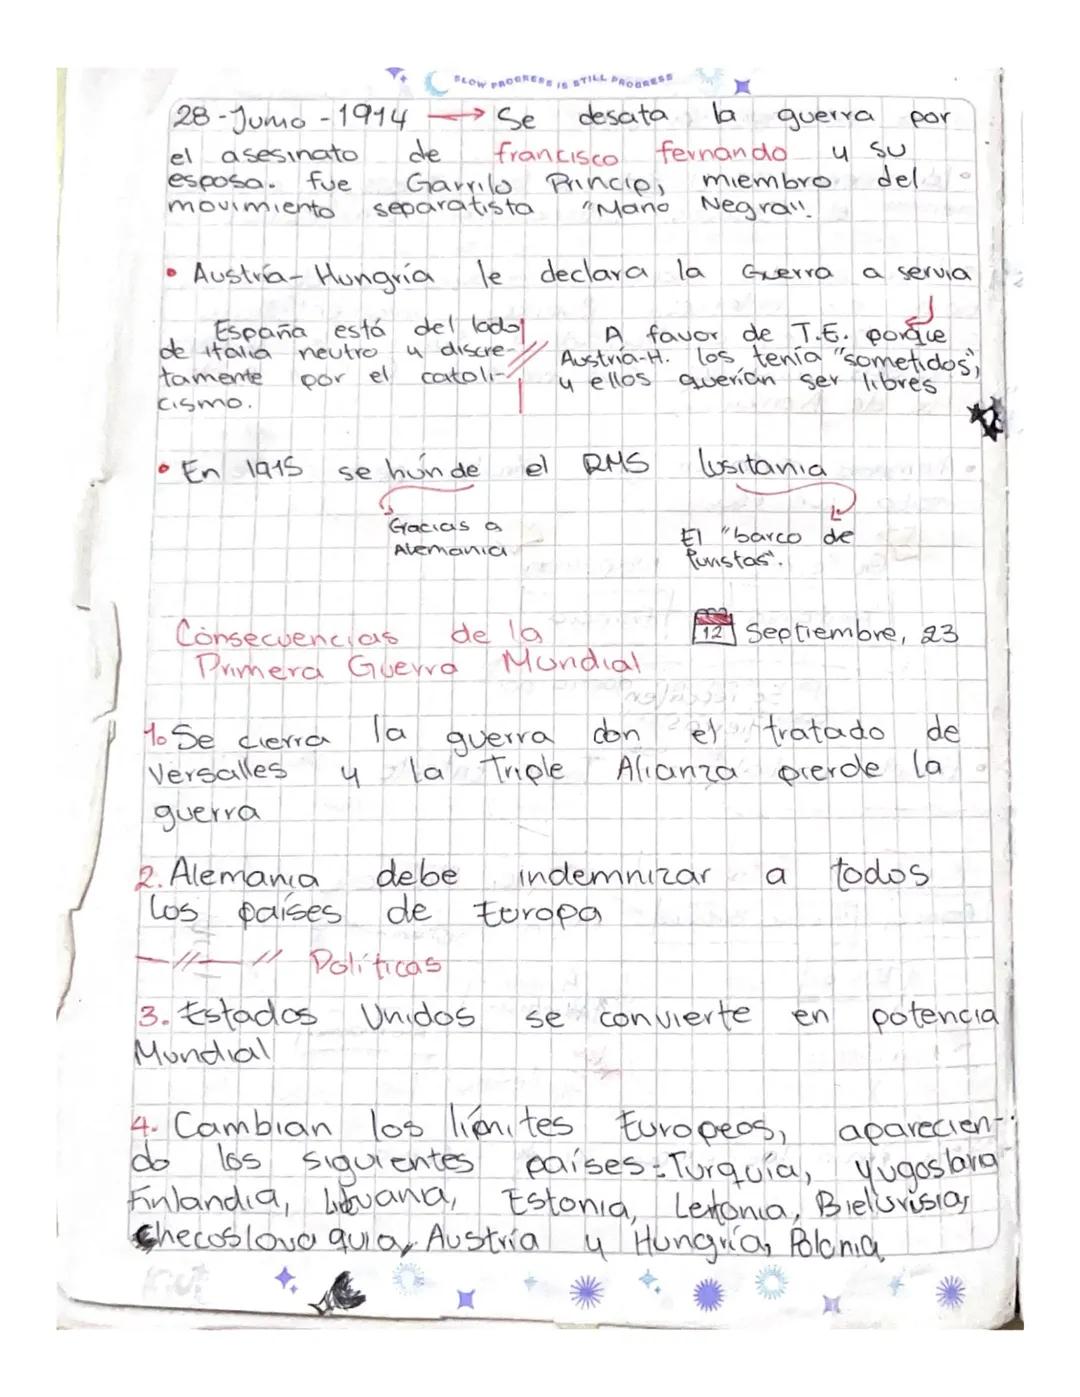 SLOW PROGRESS IS STILL PROGRESS
28-Junio-1914 → Se desata la guerra por
el asesinato de francisco fernando y su
esposa. fue Garrilo Princip, miembro del
movimiento separatista "Mano Negra".
• Austria-Hungría le declara la Guerra a servia
España está del lado
de italia neutro y discre-
tamente por el catoli-
cismo.
A favor de T.E. porque
Austria-H. los tenía "sometidos",
y ellos querían ser libres
• En 1915 se hunde el RMS lusitania
Gracias a
Alemania
El "barco de
Puristas".
Consecuencias de la
Primera Guerra Mundial
12 Septiembre, 23
1. Se cierra la guerra con el tratado de
Versalles y la Triple Alianza pierde la
guerra
2. Alemania debe indemnizar a todos
los países de Europa
Políticas
3. Estados Unidos se convierte en potencia
Mundial
4. Cambian los límites Europeos, aparecien-
do los siguientes países: Turquía, Yugoslavia
Finlandia, Lituania, Estonia, Letonia, Bielurisia,
Checoslovaquia, Austria y Hungría, Polonia